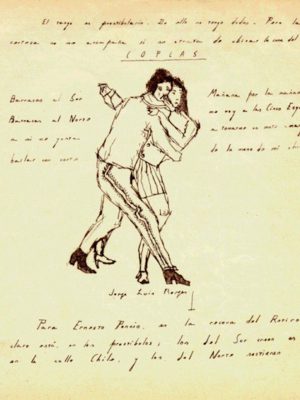 El tango es prostibulario. De ello no tengo dudas. Pero la
certeza no me acompaña si se trata de ubicar la cuna del
COPLAS
Barracas al Sur
Barracas al Norte
a mi me gusta
bailar con corte
Mañana por la mañana
me voy a las Cinco Esq
a tomarme un mate
de la mano de mi
Jorge Luis Borges
Para Ernesto Poncio, en la cocina del Retiro
claro está, en los prostíbulos; los del Sur creen
en la calle Chile, y los del Norte sostienen